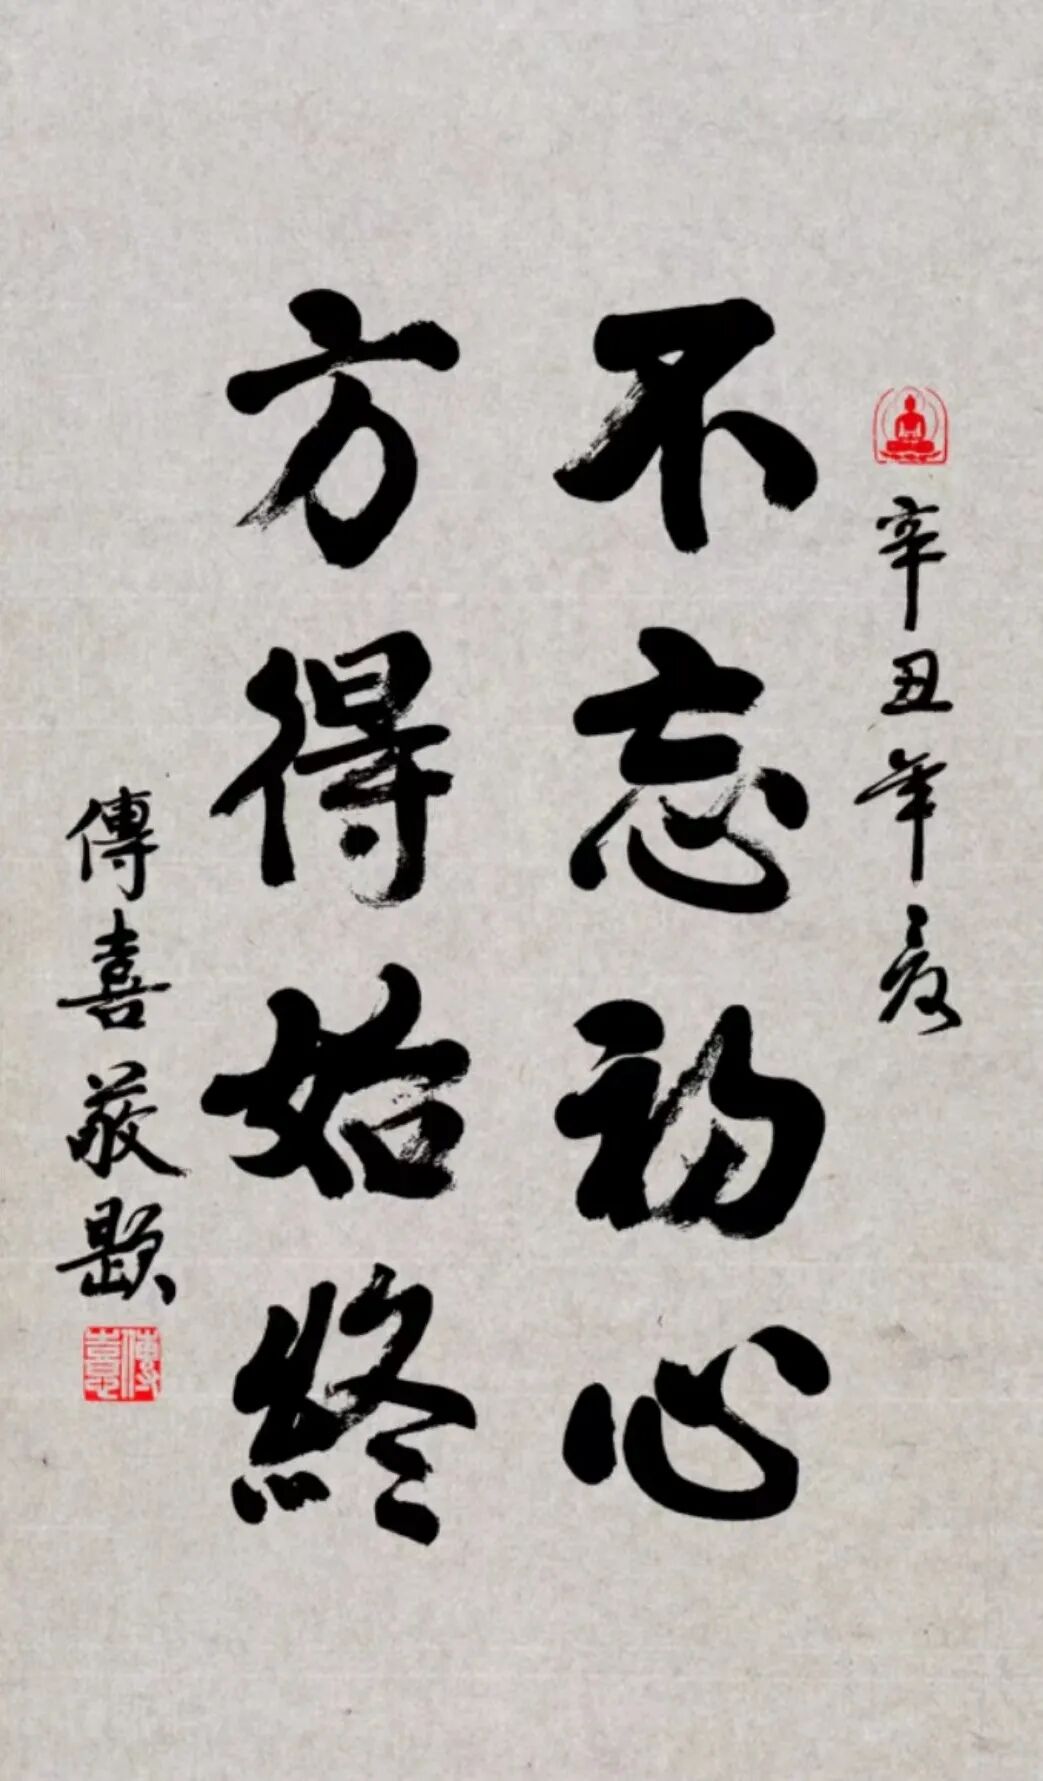 辛丑年夏
不忘初心
方得始終
傳喜敬題
傳喜